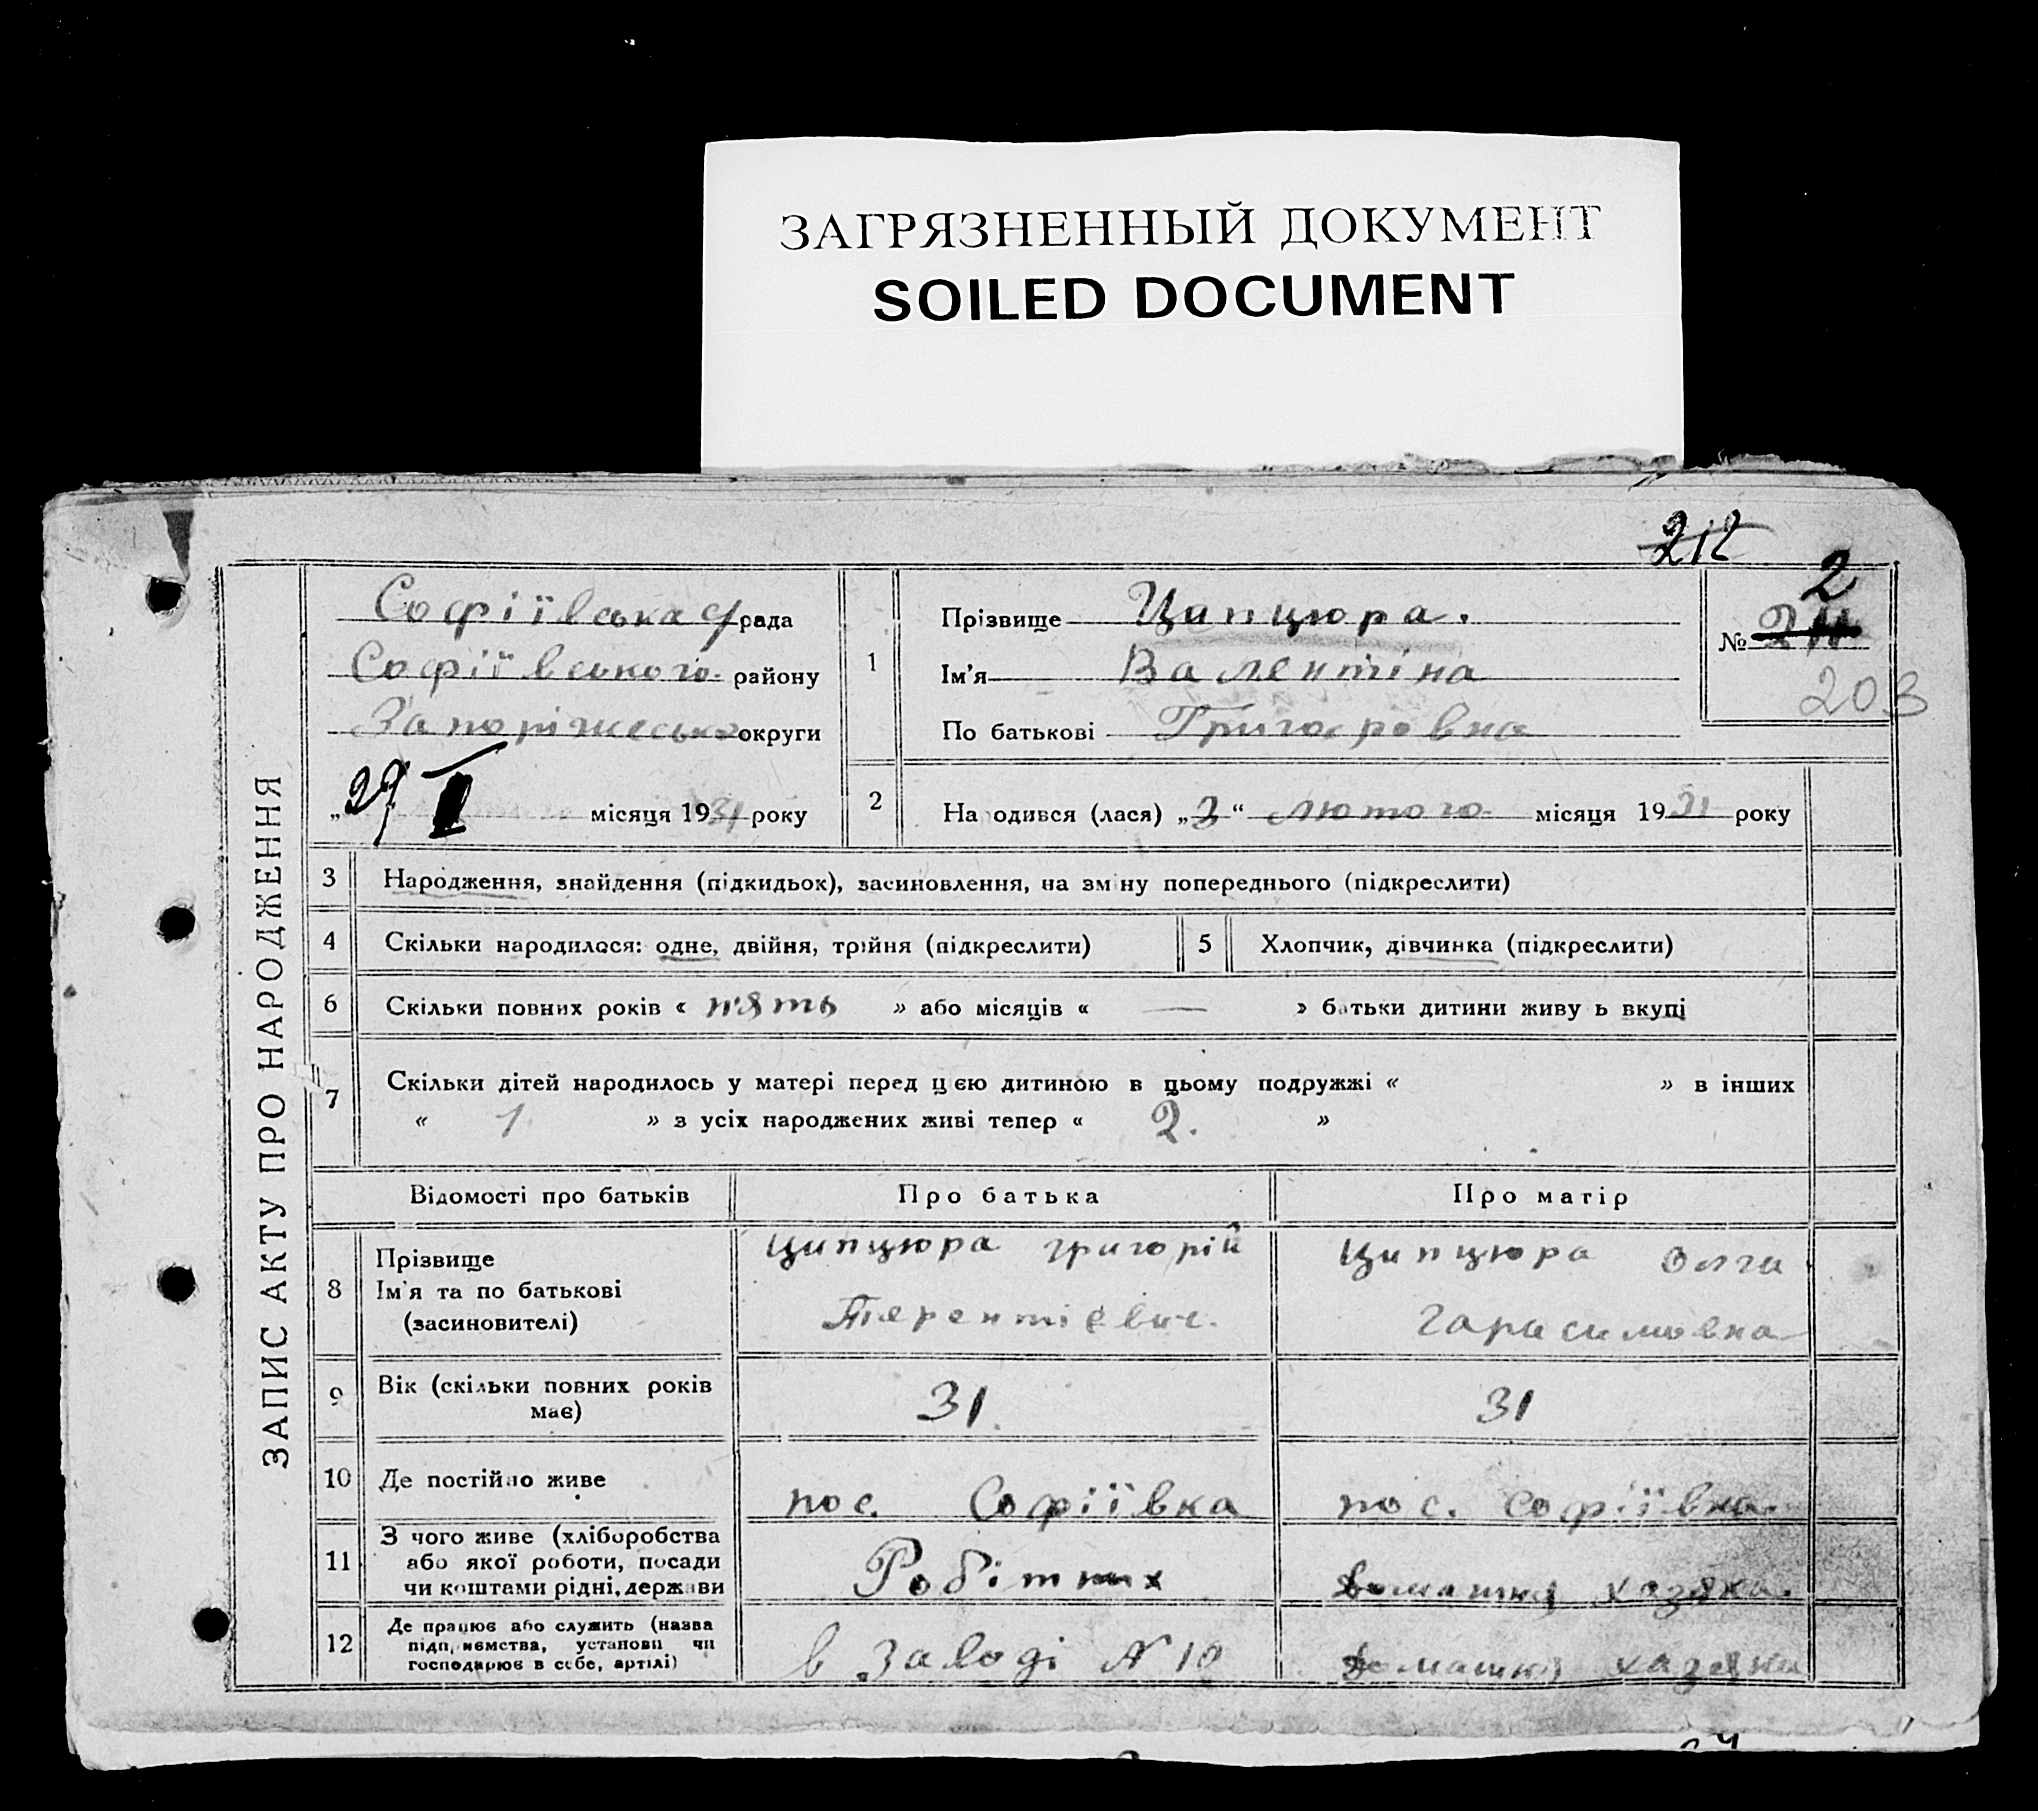 ЗАГРЯЗНЕННЫЙ ДОКУМЕНТ
SOILED DOCUMENT
212
ЗАПИС АКТУ ПРО НАРОДЖЕННЯ
Софіївська с/рада
Софіївського району
Запоріжської округи
„27 II місяця 1931 року
1
Прізвище Ципцюра.
Ім'я Валентіна
По батькові Григоровна
№ 2
203
2
Народився (лася) „3“ лютого місяця 1931 року
3 Народження, знайдення (підкидьок), засиновлення, на зміну попереднього (підкреслити)
4 Скільки народилося: одне, двійня, трійня (підкреслити)
5 Хлопчик, дівчинка (підкреслити)
6 Скільки повних років « п'ять » або місяців « — » батьки дитини живуть вкупі
7 Скільки дітей народилось у матері перед цією дитиною в цьому подружжі « » в інших
« 1 » з усіх народжених живі тепер « 2. »
Відомості про батьків Про батька Про матір
8
Прізвище
Ім'я та по батькові
(засиновителі)
Ципцюра Григорій
Терентієвич.
Ципцюра Олга
Гарасимовна
9 Вік (скільки повних років
має)
31
31
10 Де постійно живе
пос. Софіївка
пос. Софіївка.
11
З чого живе (хліборобства
або якої роботи, посади
чи коштами рідні, держави
Робітник
домашня хазяка.
12
Де працює або служить (назва
підприємства, установи чи
господарює в себе, артілі)
в Заводі №10
домашня хазяка